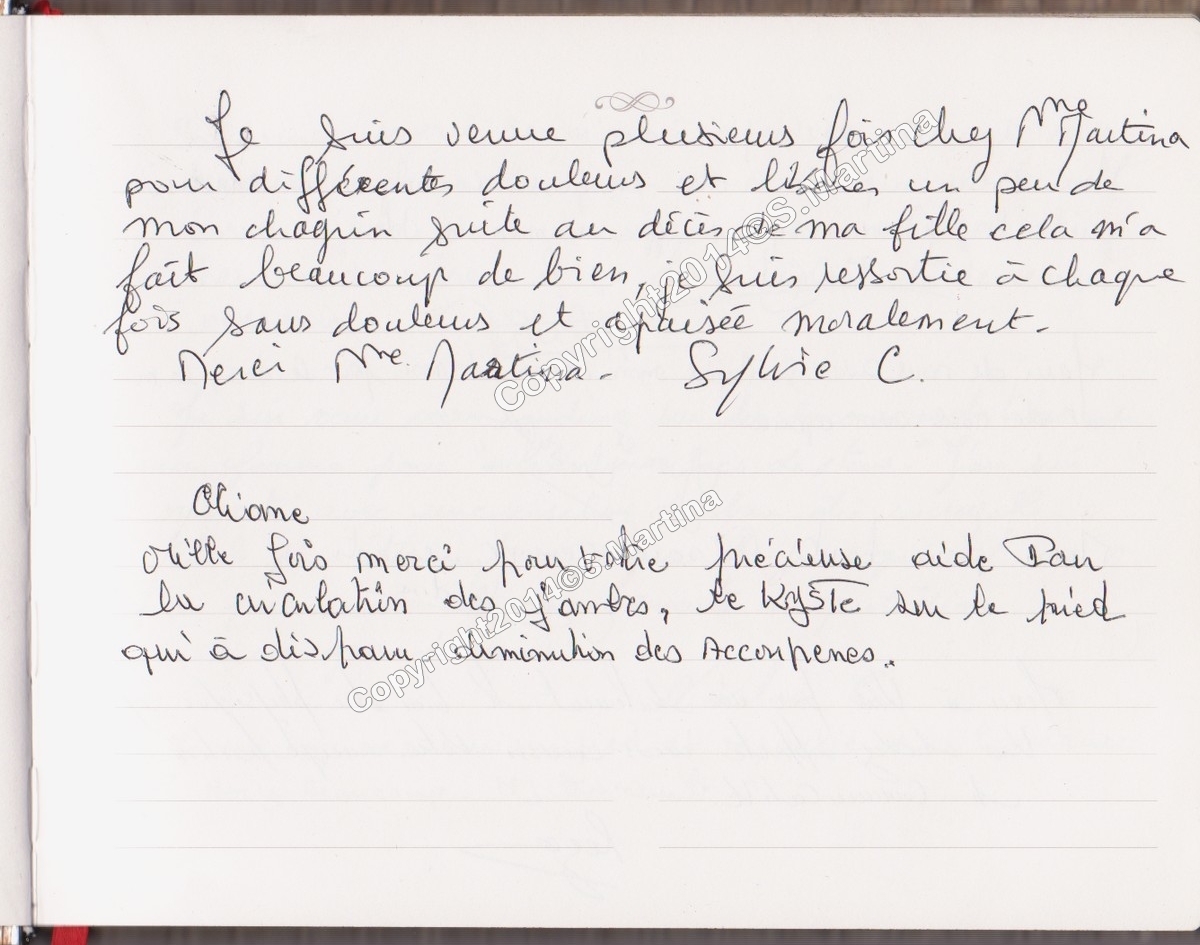 Je suis venue plusieurs fois chez Mme Martina
pour différentes douleurs et libérer un peu de
mon chagrin suite au décès de ma fille cela m'a
fait beaucoup de bien, je suis ressortie à chaque
fois sans douleurs et apaisée moralement.
Merci Mme Martina. Sylvie C.
Copyright2014©S.Martina
mille fois merci pour votre précieuse aide Pour
la circulation des jambes, le KySTe sur le pied
qui à disparu diminution des
Copyright2014©S.Martina